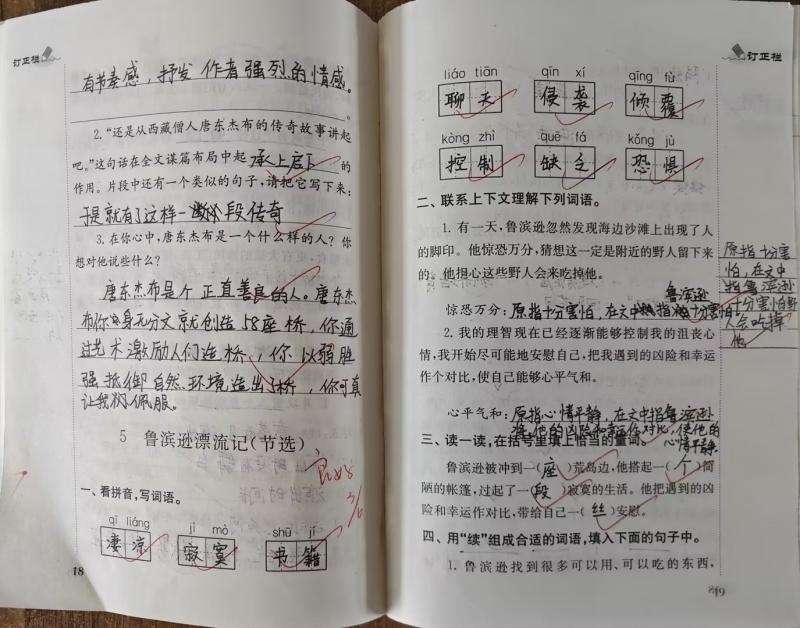 订正栏
有节奏感，抒发作者强烈的情感。
2.“还是从西藏僧人唐东杰布的传奇故事讲起
吧。”这句话在全文谋篇布局中起承上启下的
作用。片段中还有一个类似的句子，请把它写下来：
于是就有了这样一段传奇
3.在你心中，唐东杰布是一个什么样的人？你
想对他说些什么？
唐东杰布是个正直善良的人。唐东杰
布你身无分文就创造58座桥，你通
过艺术激励人们造桥，你以弱胜
强抵御自然环境造出了桥，你可真
让我佩服。
5 鲁滨逊漂流记(节选)
良好
一、看拼音，写词语。
qī liáng jì mò shū jí
凄凉 寂寞 书籍
18
订正栏
liáo tiān qīn xí qīng fù
聊天 侵袭 倾覆
kòng zhì quē fá kǒng jù
控制 缺乏 恐惧
二、联系上下文理解下列词语。
1.有一天，鲁滨逊忽然发现海边沙滩上出现了人
的脚印。他惊恐万分，猜想这一定是附近的野人留下来
的。他担心这些野人会来吃掉他。
鲁滨逊
惊恐万分：原指十分害怕，在文中指十分害怕
原指十分害
怕，在文中
指鲁滨逊
害怕野
人会吃掉
他
2.我的理智现在已经逐渐能够控制我的沮丧心
情，我开始尽可能地安慰自己，把我遇到的凶险和幸运
作个对比，使自己能够心平气和。
心平气和：原指心情平静，在文中指鲁滨逊
将他的凶险和幸运作对比，使他的
心情平静
三、读一读，在括号里填上恰当的量词。
鲁滨逊被冲到一(座)荒岛边，他搭起一(个)简
陋的帐篷，过起了一(段)寂寞的生活。他把遇到的凶
险和幸运作对比，带给自己一(丝)安慰。
四、用“续”组成合适的词语，填入下面的句子中。
1.鲁滨逊找到很多可以用、可以吃的东西，